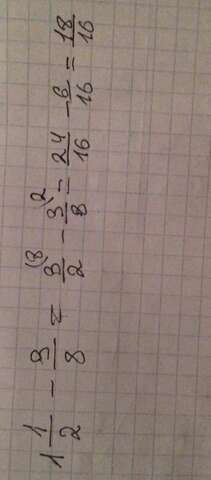 1 1/2 - 3/8 = 3/2 (8 - 3/8 (2 = 24/16 - 6/16 = 18/16